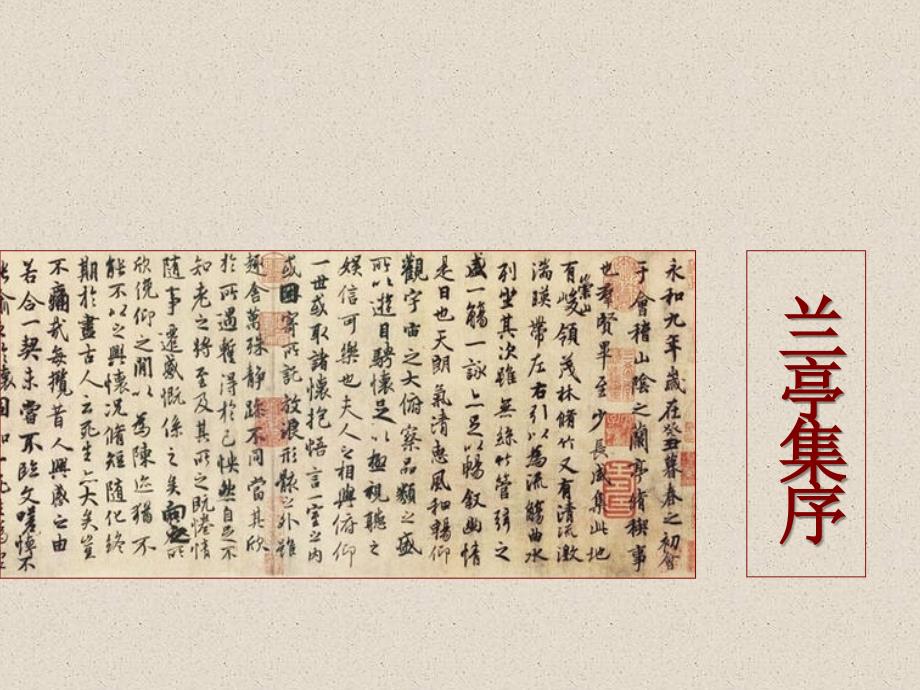 兰亭集序
永和九年歲在癸丑暮春之初會
于會稽山陰之蘭亭脩稧事
也羣賢畢至少長咸集此地
有崇山峻領茂林脩竹又有清流激
湍暎帶左右引以為流觴曲水
列坐其次雖無絲竹管弦之
盛一觴一詠亦足以暢敘幽情
是日也天朗氣清惠風和暢仰
觀宇宙之大俯察品類之盛
所以遊目騁懷足以極視聽之
娛信可樂也夫人之相與俯仰
一世或取諸懷抱悟言一室之內
或因寄所託放浪形骸之外雖
趣舍萬殊靜躁不同當其欣
於所遇蹔得於己怏然自足不
知老之將至及其所之既惓情
隨事遷感慨係之矣向之所
欣俛仰之閒以為陳迹猶不
能不以之興懷況脩短隨化終
期於盡古人云死生亦大矣豈
不痛哉每攬昔人興感之由
若合一契未嘗不臨文嗟悼不